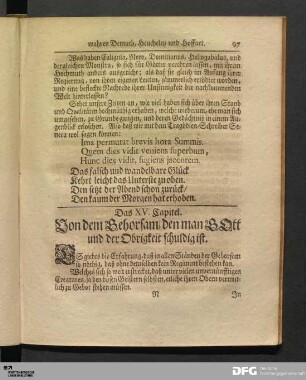 wahrer Demuth, Heucheley und Hoffart. 97
Was haben Caligula, Nero, Domitianus, Heliogabalus, und
dergleichen Monstra, so sich für Götter verehren lassen, mit ihrem
Hochmuth anders ausgericht; als daß sie gleich im Anfang ihrer
Regierung, von ihren eigenen Leuten, jämmerlich ermordet worden,
und eine befleckte Nachrede ihrer Unsinnigkeit der nachkommenden
Welt hinterlassen?
Sehet unsere Zeiten an, wie viel haben sich über ihren Stand
und Qualitäten hochmüthig erhoben, welche wiederum, ehemah sich
umgesehen, zu Grunde gangen, und deren Gedächtnuß in einem Au-
genblick erloschen. Also daß wir mit dem Tragödien-Schreiber Se-
neca wol sagen können:
Ima permutat brevis hora Summis.
Quem dies vidit veniens superbum,
Hunc dies vidit, fugiens jacentem.
Das falsch und wandelbare Glück
Kehrt leicht das Unterste zu oben.
Den setzt der Abend schon zurück/
Den kaum der Morgen hat erhoben.
Das XV. Capitel.
Von dem Gehorsam/den man GOtt
und der Obrigkeit schuldig ist.
ES giebet die Erfahrung, daß in allen Ständen der Gehorsam
so nöthig, daß ohne denselben kein Regiment bestehen kan.
Welches sich so weit erstrecket, daß unter vielen unvernünfftigen
Creaturen, ja den bösen Geistern selbsten, etliche ihren Obern vernem-
lich zu Gebot stehen müssen.
N In
DFG